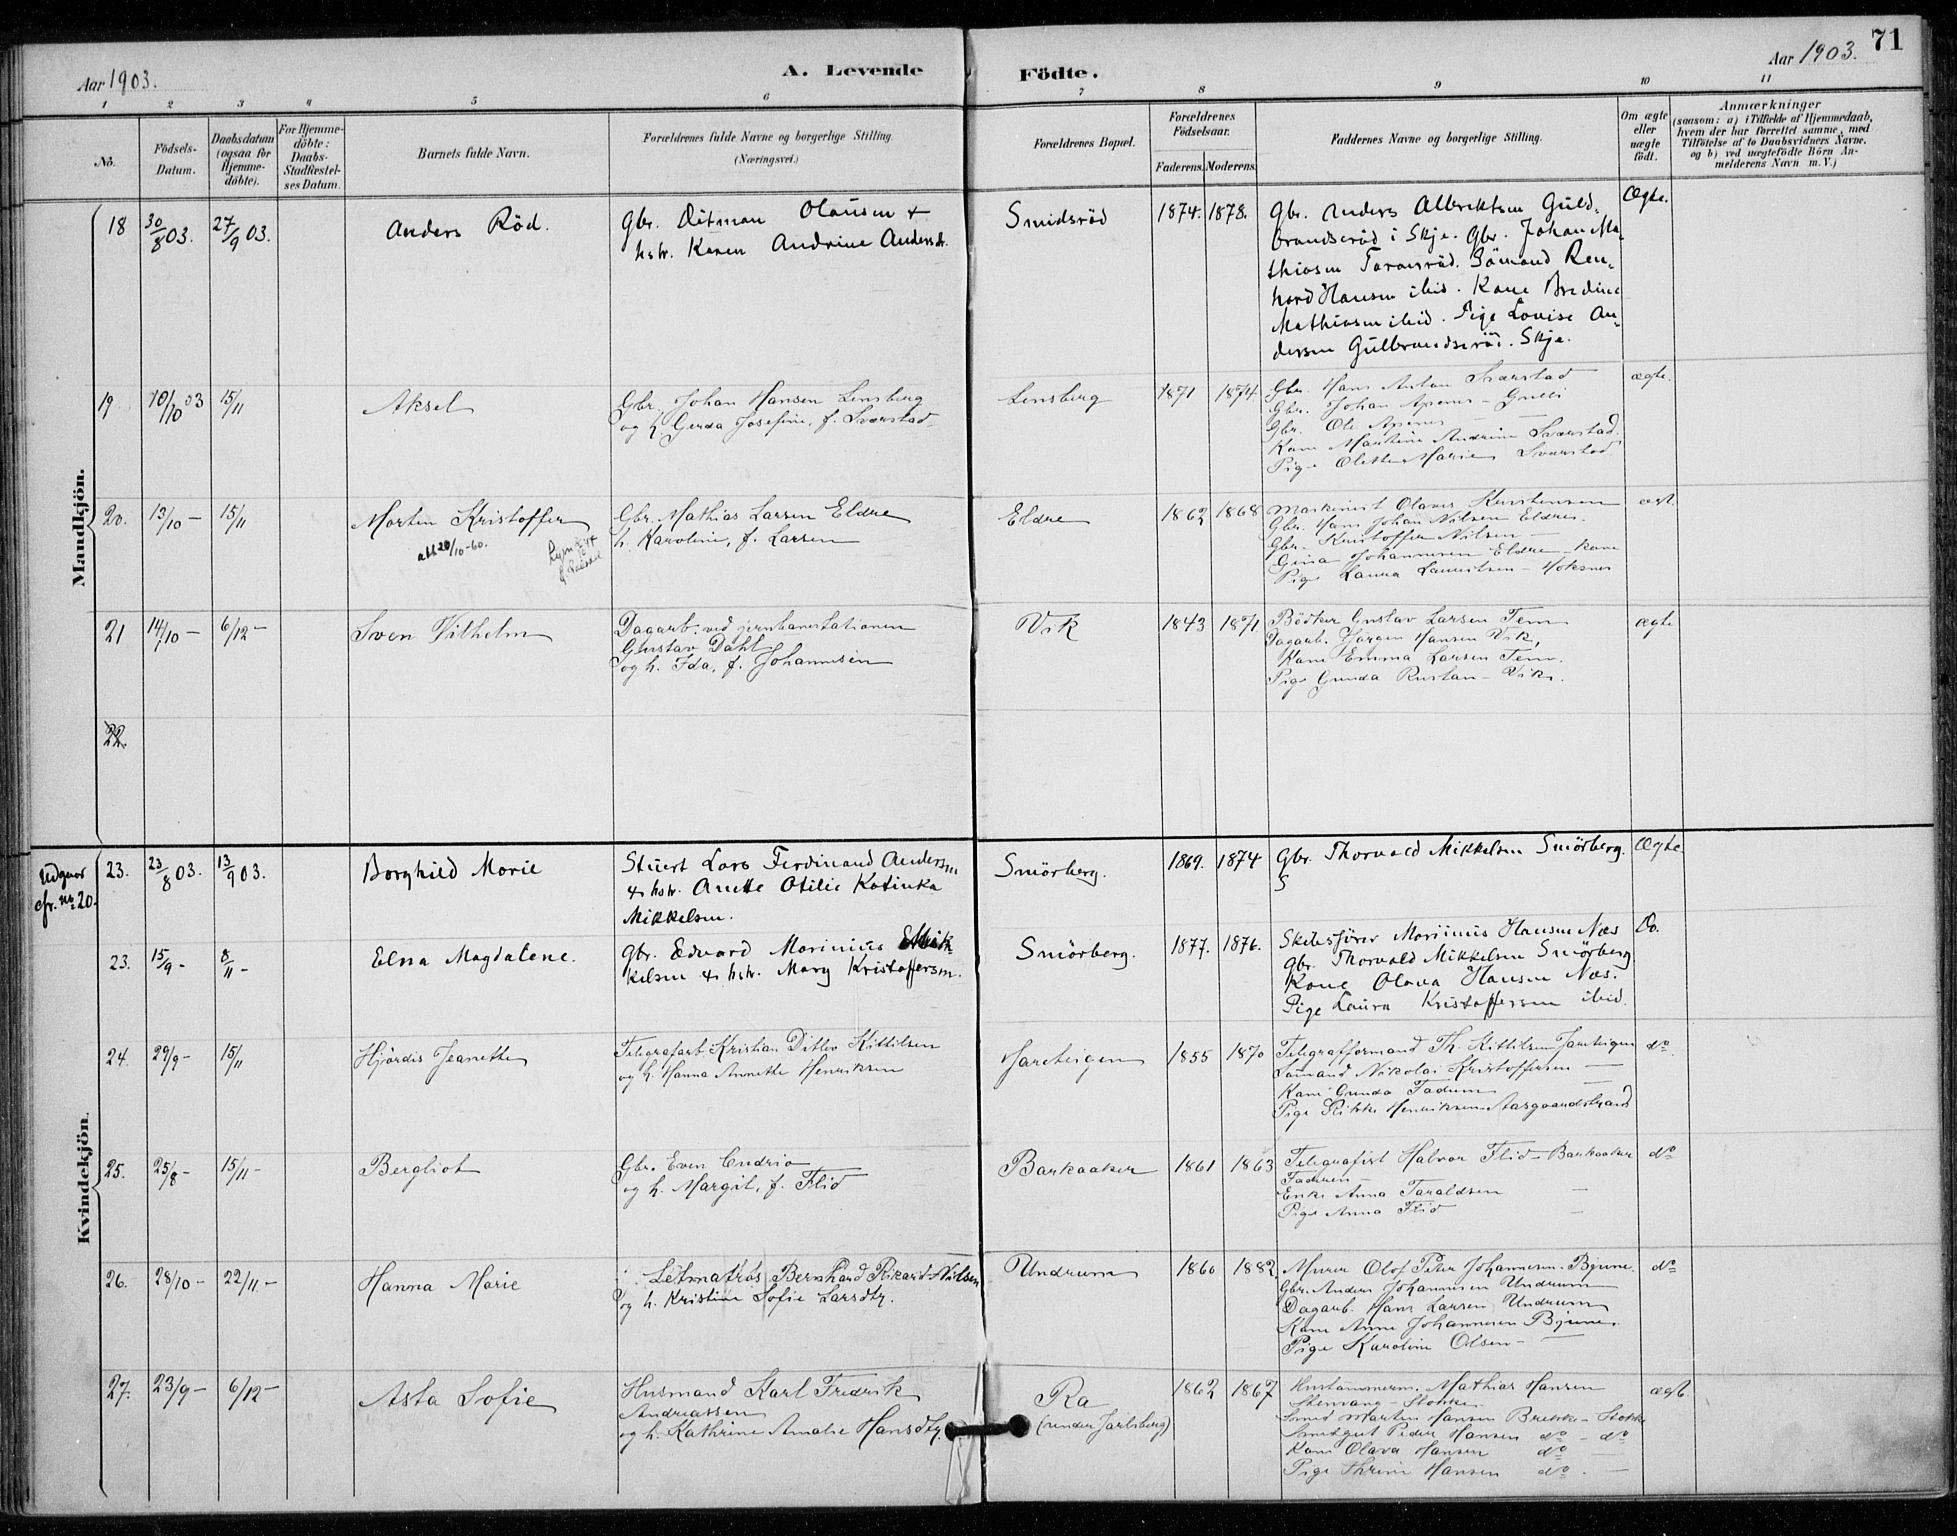 71
Aar 1903.
A. Levende Födte.
Aar 1903.
1 2 3 4 5 6 7 8 9 10 11
No.
Födsels-Datum.
Daabsdatum (ogsaa for Hjemme-döbte).
For Hjemme-döbte: Daabs-Stadfæstel-ses Datum.
Barnets fulde Navn.
Forældrenes fulde Navne og borgerlige Stilling.
(Næringsvei.)
Forældrenes Bopæl.
Forældrenes Födselsaar.
Faderens. Moderens.
Faddernes Navne og borgerlige Stilling.
Om ægte eller uægte födt.
Anmærkninger
(saasom: a) i Tilfælde af Hjemmedaab,
hvem der har forrettet samme, med
Tilföielse af to Daabsvidners Navne,
og b) ved uægtefödte Börn An-
melderens Navn m. V.)
Mandkjön.
18 30/8 03. 27/9 03. Anders Röd.
Gbr. Ditman Olausen &
hstr. Karen Andrine Andersdr.
Smidsröd 1874. 1878.
Gbr. Anders Albriktsen Guld-
brandseröd i Skje. Gbr. Johan Ma-
thiasen Taranröd. Sömand Ren-
hard Hansen ibid. Kone Bredine
Mathiasen ibid. Pige Lovise An-
dersen Gulbrandseröd. Skje.
Ægte.
19 10/10 03 15/11 Aksel
Gbr. Johan Hansen Lensberg
og h. Gerda Josefine, f. Svarstad
Lensberg 1871 1874
Gbr. Hans Anton Svarstad
Gbr. Johan Apenes - Gulli
Gbr. Ole Apenes
Kone Martine Andrine Svarstad
Pige Olette Marie Svarstad
ægte.
20. 13/10 - 15/11 Morten Kristoffer
att 20/10-60.
Gbr. Mathias Larsen Eldre
h. Karoline, f. Larsen
Eldre 1862 1868
Maskinist Olaves Kristensen
Gbr. Hans Johan Nilsen Eldre
Gbr. Kristoffer Nilsen -
Gina Johannesen Eldre - Kone
Pige Lauva Lauritsen - Moksnes
ægt.
21 14/10 - 6/12 - Sven Vilhelm
Dagarb. ved jernbanestationen
Gustav Dahl
og h. Ida, f. Johannesen
Vik 1843 1871
Bödker Gustav Larsen Tem
Dagarb. Jörgen Hansen Vik,
Kone Emma Larsen Tem.
Pige Gunda Rustan - Vik.
ægte
22.
Kvindekjön.
Udgaar cfr. No 20.
23. 23/8 03. 13/9 03. Borghild Marie
Stuert Lars Ferdinand Andersen
& hstr. Anette Otilie Katinka
Mikkelsen.
Smörberg. 1869. 1874
Gbr. Thorvald Mikkelsen Smörberg.
S
Ægte
23. 15/9 - 8/11 - Elna Magdalene.
Gbr. Edvard Marinius Mik-
kelsen & hstr. Mary Kristoffersen.
Smörberg. 1877. 1876.
Skibsförer Marinius Hansen Næs
Gbr. Thorvald Mikkelsen Smörberg
Kone Olava Hansen Næs.
Pige Laura Kristoffersen ibid.
Do.
24. 29/9 - 15/11 Hjördis Jeanette
Telegrafarb. Kristian Ditlev Kittilsen
og h. Hanna Annette Henriksen
Jareteigen 1855 1870
Telegrafformand Th. Kittilsen Jareteigen
Sömand Nikolai Kristoffersen -
Kone Gunda Fadum -
Pige Rikke Henriksen Aasgaardstrand
do
25. 25/8 - 15/11 - Bergliot
Gbr. Even Endrio
og h. Margit, f. Flid
Barkaaker 1861 1863
Telegrafist Halvor Flid - Barkaaker
Faderen -
Enke Anna Taraldsen -
Pige Anna Flid -
do
26. 28/10 - 22/11 - Hanna Marie
Letmatros Bernhard Rikard Nielsen
og h. Kristine Sofie Larsdtr.
Undrum 1860 1882
Murer Olof Peter Johannesen. Bjune
Gbr. Anders Johannesen Undrum
Dagarb. Hans Larsen Undrum
Kone Anne Johannesen Bjune.
Pige Karoline Olsen -
do
27. 23/9 - 6/12 - Asta Sofie
Husmand Karl Fredrik
Andreassen
og h. Kathrine Amalie Hansdtr.
Ra
(under Jarlsberg)
1862 1867
Hustömmerm. Mathias Hansen
Stenvang - Stokke
Smed Marten Hansen Brekke - Stokke
Peder Hansen do - do
Kone Olava Hansen do -
Pige Thrine Hansen do -
ægt.